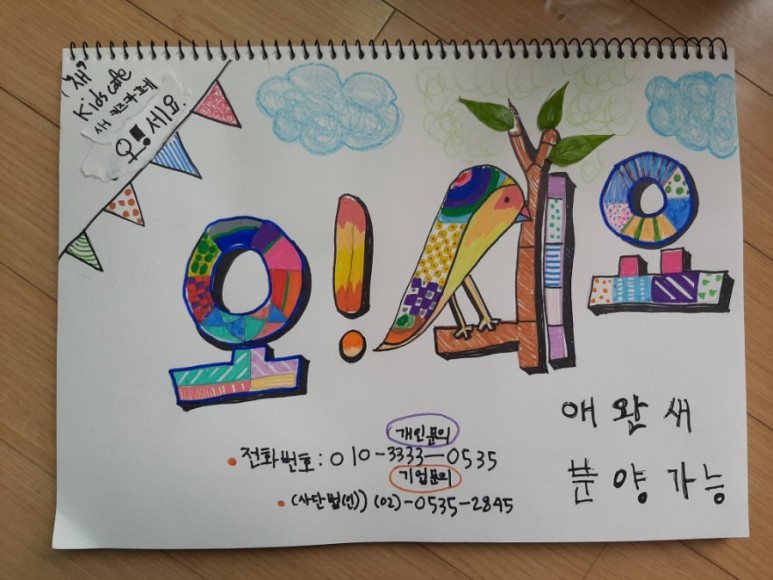 "새"
Kids cafe
새 키즈카페
오!세요
오!세요
개인문의
• 전화번호: 010-3333-0535
기업문의
• (사단법(인)) (02)-0535-2845
애완새
분양가능